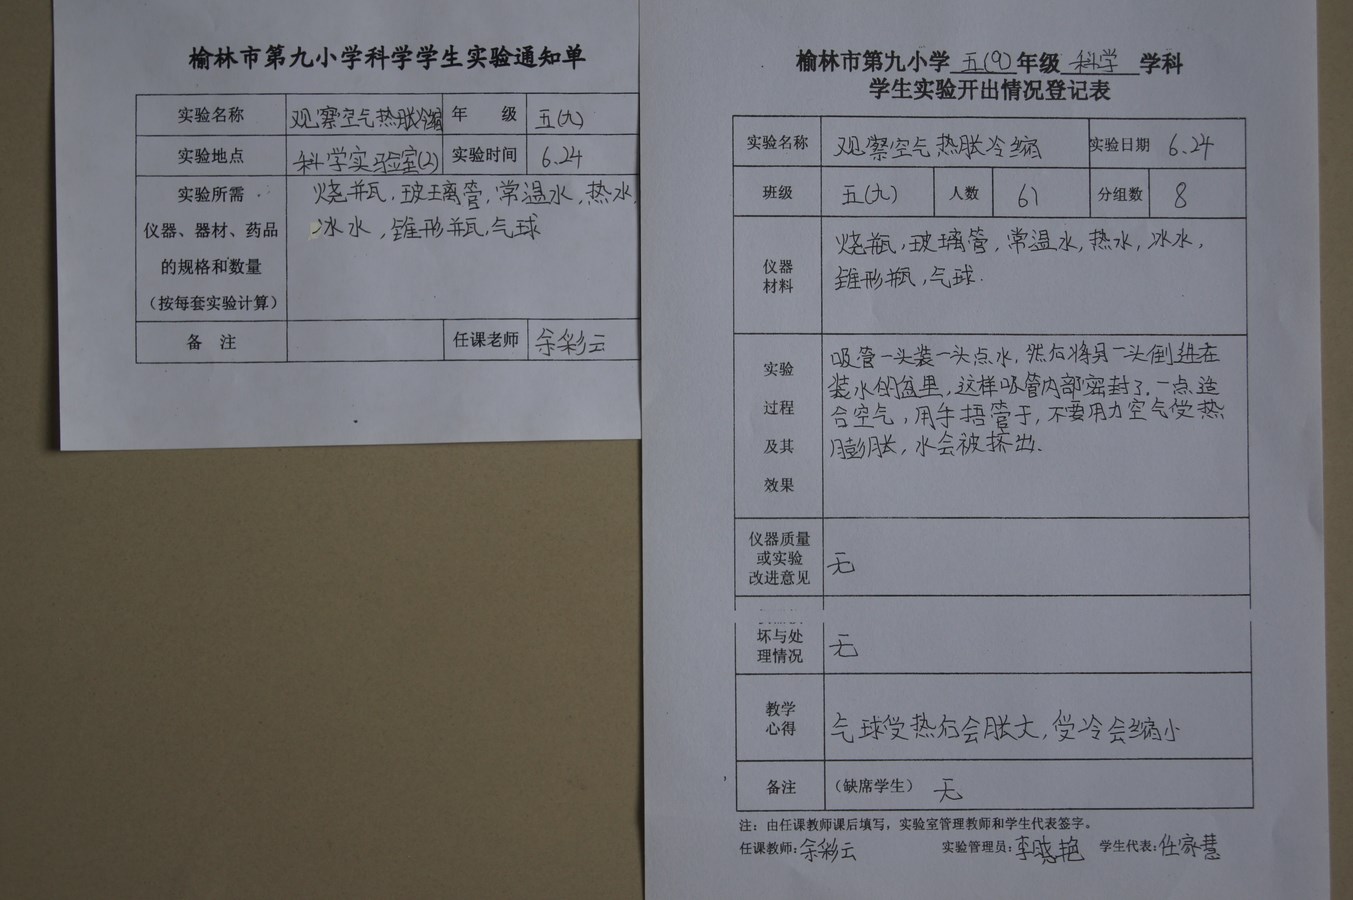 榆林市第九小学科学学生实验通知单
实验名称 观察空气热胀冷缩 年 级 五(九)
实验地点 科学实验室(2) 实验时间 6.24
实验所需 烧瓶,玻璃管,常温水,热水,
仪器、器材、药品 冰水,锥形瓶,气球
的规格和数量
(按每套实验计算)
备 注 任课老师 余彩云
榆林市第九小学 五(9) 年级 科学 学科
学生实验开出情况登记表
实验名称 观察空气热胀冷缩 实验日期 6.24
班级 五(九) 人数 61 分组数 8
仪器
材料
烧瓶,玻璃管,常温水,热水,冰水,
锥形瓶,气球.
实验
过程
及其
效果
吸管一头装一头点水,然后将另一头倒进在
装水的盆里,这样吸管内部密封了.一点造
合空气,用手捂管子,不要用力空气受热
膨胀,水会被挤出.
仪器质量
或实验
改进意见
无
坏与处
理情况
无
教学
心得
气球受热后会胀大,受冷会缩小
备注 (缺席学生) 无
注:由任课教师课后填写,实验室管理教师和学生代表签字。
任课教师:余彩云 实验管理员:李晓艳 学生代表:任家慧